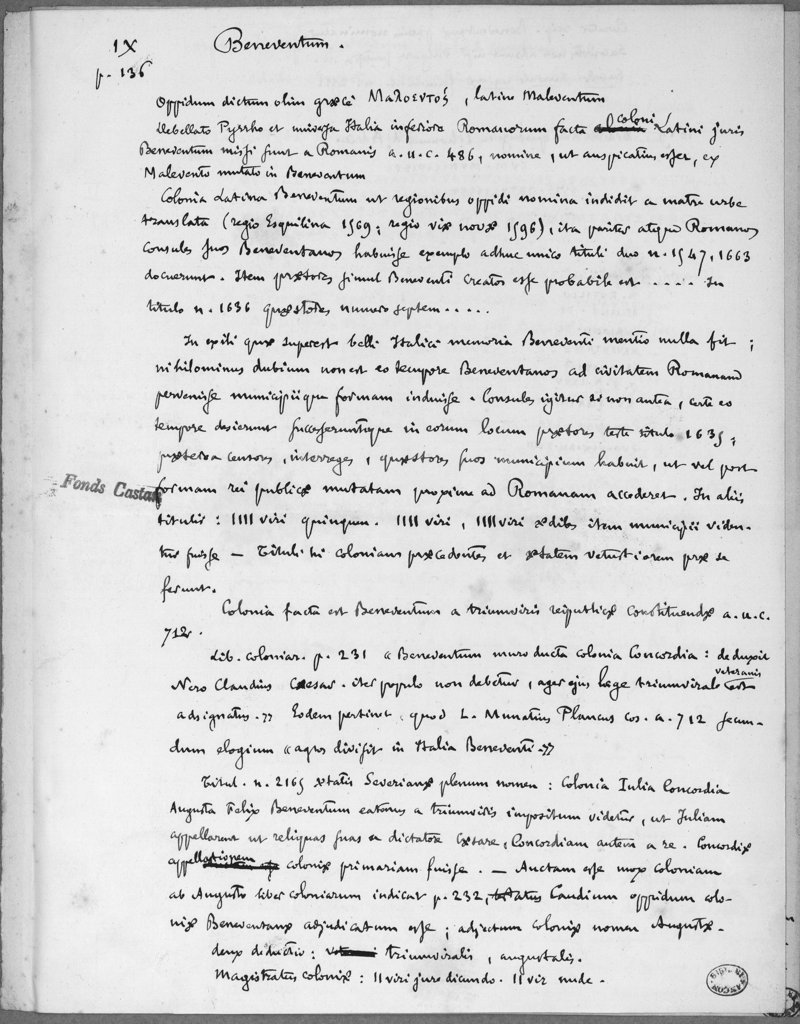 IX Beneventum.
p. 136
Oppidum dictum olim græcè Μαλοεντός, latine Maleventum
Debellato Pyrrho et universa Italia inferiore Romanorum facta coloni Latini juris
Beneventum missi sunt a Romanis a.u.c. 486, nomine, ut auspicatius esset, ex
Malevento mutato in Beneventum
Colonia Latina Beneventum ut regionibus oppidi nomina indidit a matre urbe
translata (regio Esquilina 1569; regio viæ novæ 1596), ita pariter atque Romanos
Consules suos Beneventanos habuisse exemplo adhuc unico tituli duo n. 1547, 1663
docuerunt. Item prætores simul Beneventi creatos esse probabile est ..... In
titulo n. 1636 quæstores numero septem .....
In exili quæ superest belli Italici memoria Beneventi mentio nulla fit;
nihilominus dubium non est eo tempore Beneventanos ad civitatem Romanam
pervenisse municipiique formam induisse. Consules igitur si non antea, certe eo
tempore desierunt successeruntque in eorum locum prætores teste titulo 1635;
præterea censores, interreges, quæstores suos municipium habuit, ut vel post
formam rei publicæ mutatam proxime ad Romanam accederet. In aliis
titulis: IIII viri quinquen. IIII viri, IIII viri ædiles item municipii viden-
tur fuisse — Tituli hi coloniam præcedentes et ætatem vetustiorem præ se
ferunt.
Fonds Castan
Colonia facta est Beneventum a triumviris reipublicæ constituendæ a.u.c.
712.
Lib. coloniar. p. 231 « Beneventum muro ducta colonia Concordia: deduxit
Nero Claudius Cæsar. iter populo non debetur, ager ejus lege triumvirale veteranis est
adsignatus. » Eodem pertinet quod L. Munatius Plancus cos. a. 712 secun-
dum elogium « agros divisit in Italia Beneventi. »
Titul. n. 2165 ætatis Severianæ plenum nomen: Colonia Iulia Concordia
Augusta Felix Beneventum eatenus a triumviris impositum videtur, ut Juliam
appellarent ut reliquas suas a dictatore Cæsare, Concordiam autem a re. Concordiæ
appellationem coloniæ primariam fuisse. — Auctam esse mox coloniam
ab Augusto liber coloniarum indicat p. 232, Caudium oppidum colo-
niæ Beneventanæ adjudicatum esse; adjectum coloniæ nomen Augustæ.
deux deductio: triumviralis, augustalis.
Magistratus coloniæ: II viri jure dicundo. II vir nude.
BESANÇON